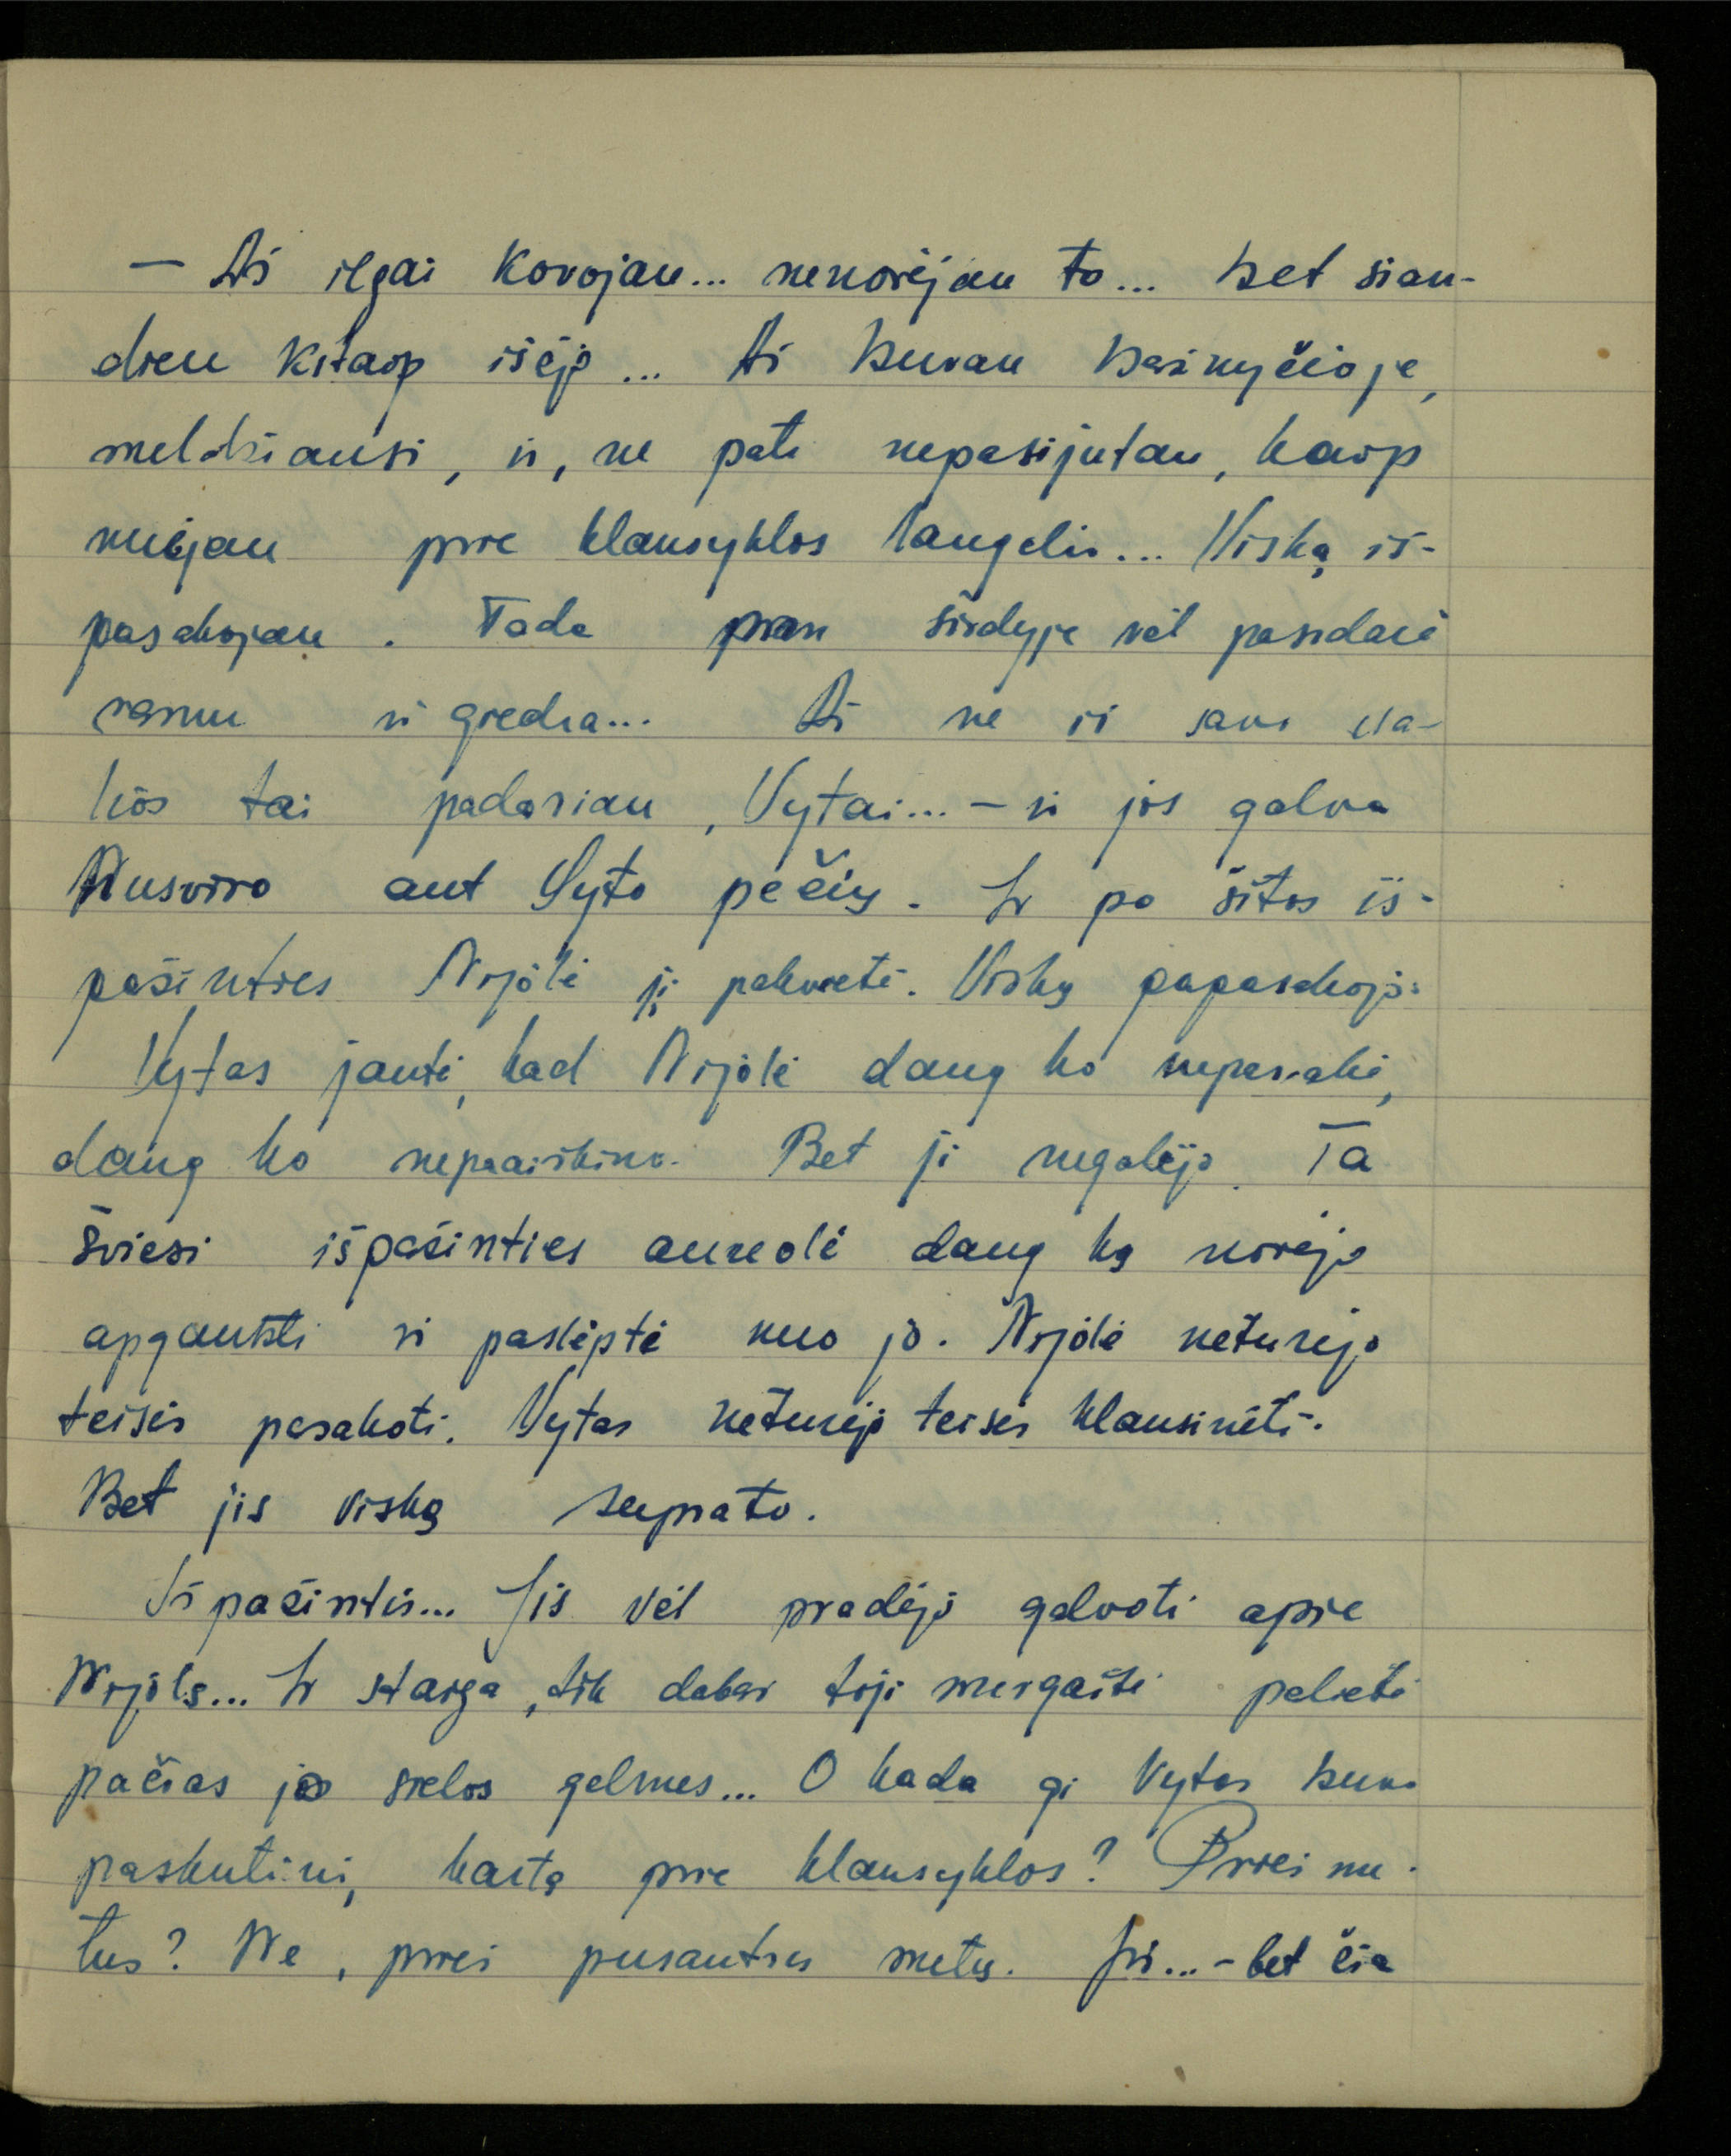 — Aš ilgai kovojau... nenorėjau to... bet šian-
dien kitaip išėjo... Aš buvau bažnyčioje,
meldžiausi, ir, nė pati nepasijutau, kaip
nuėjau prie klausyklos langelio... Viską iš-
pasakojau. Tada man širdyje vėl pasidarė
ramu ir giedra... Aš ne iš savo va-
lios tai padariau, Vytai... – ir jos galva
nusviro aut Vyto pečių. Ir po šitos iš-
pažinties Nijolė jį pakvietė. Viską papasakojo.
Vytas jautė, kad Nijolė daug ko nepasakė,
daug ko nepaaiškino. Bet ji negalėjo. Ta
šviesi išpažinties aureolė daug ką norėjo
apgaubti ir paslėpti nuo jo. Nijolė neturėjo
teisės pasakoti. Vytas neturėjo teisės klausinėti.
Bet jis viską suprato.
Išpažintis... Jis vėl pradėjo galvoti apie
Nijolę... Ir staiga, tik dabar toji mergaitė palietė
pačias jo sielos gelmes... O kada gi Vytas buvo
paskutinį kartą prie klausyklos? Prieš me-
tus? Ne, prieš pusantrų metų. Jis... – bet čia